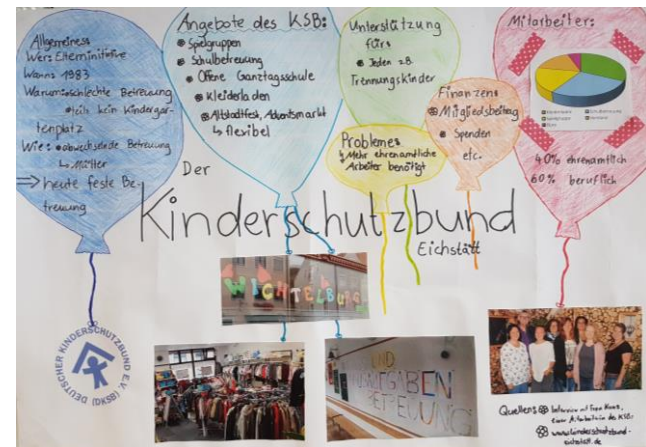 Allgemeines
Wer: Elterninitiative
Wann: 1983
Warum: schlechte Betreuung
teils kein Kindergar-
tenplatz
Wie: abwechselnde Betreuung
↳ Mütter
⇒ heute feste Be-
treuung
Angebote des KSB:
Spielgruppen
Schulbetreuung
Offene Ganztagsschule
Kleiderladen
Altstadtfest, Adventsmarkt
↳ flexibel
Unterstützung
fürs
Jeden z.B.
Trennungskinder
Probleme:
↳ Mehr ehrenamtliche
Arbeiter benötigt
Finanzen:
Mitgliedsbeitrag
Spenden
etc.
Mitarbeiter:
40% ehrenamtlich
60% beruflich
Der
Kinderschutzbund
Eichstätt
WICHTELBURG
UND
BETREUUNG
DEUTSCHER KINDERSCHUTZBUND E.V. (DKSB)
Quellen: Interview mit Frau
einer Mitarbeiterin des KSB
www.kinderschutzbund-
eichstätt.de